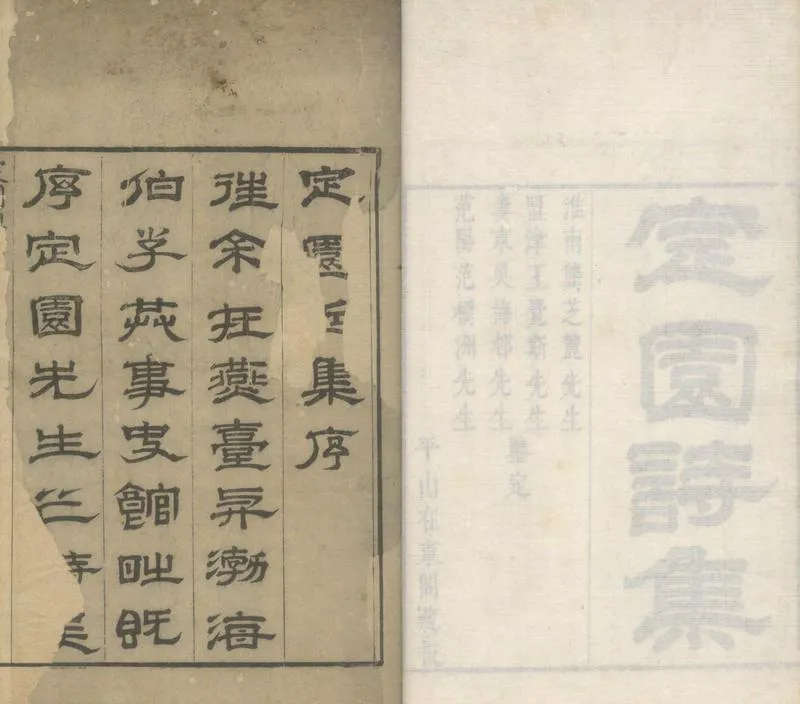 定園詩集
淮南龔芝麓先生
盟津王覺斯先生
婁東吳梅邨先生
范陽范橘洲先生
鑒定
平山在東閣藏板
定園集序
往余在燕臺與渤海
伯子共事史館時既
序定園先生之詩矣